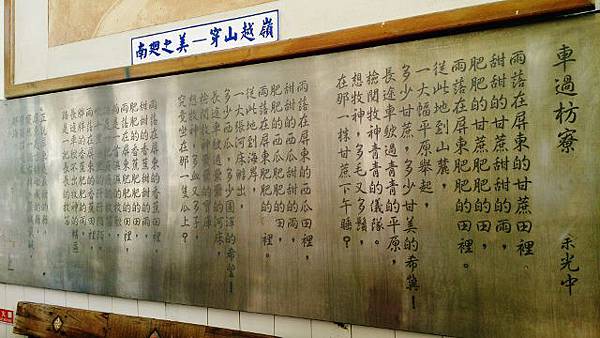 南廻之美—穿山越嶺
車過枋寮 余光中
雨落在屏東的甘蔗田裡
甜甜的甘蔗甜甜的雨,
肥肥的甘蔗肥肥的田,
雨落在屏東肥肥的田裡。
從此地到山麓,
一大幅平原舉起,
多少甘蔗,多少甘美的希冀!
長途車駛過青青的平原,
檢閱牧神青青的儀隊。
想牧神,多毛又多鬚,
在那一株甘蔗下午睡?
雨落在屏東的西瓜田裡,
甜甜的西瓜甜甜的雨,
肥肥的西瓜肥肥的田,
雨落在屏東肥肥的田裡。
從此地到海岸,
一大張河床孵出,
多少西瓜,多少圓渾的希望!
長途車駛過纍纍的河床,
檢閱牧神纍纍的寶庫
想牧神,多血又多子,
究竟坐在那一隻瓜上?
雨落在屏東的香蕉田裡,
甜甜的香蕉甜甜的雨,
肥肥的香蕉肥肥的田,
雨落在屏東肥肥的田裡。
雨是一首濕濕的牧歌,
路是一把瘦瘦的牧笛,
雨落在屏東的香蕉田裡,
胖胖的香蕉肥肥的雨,
長途車駛不出牧神的轄區,
路是一把長長的牧笛